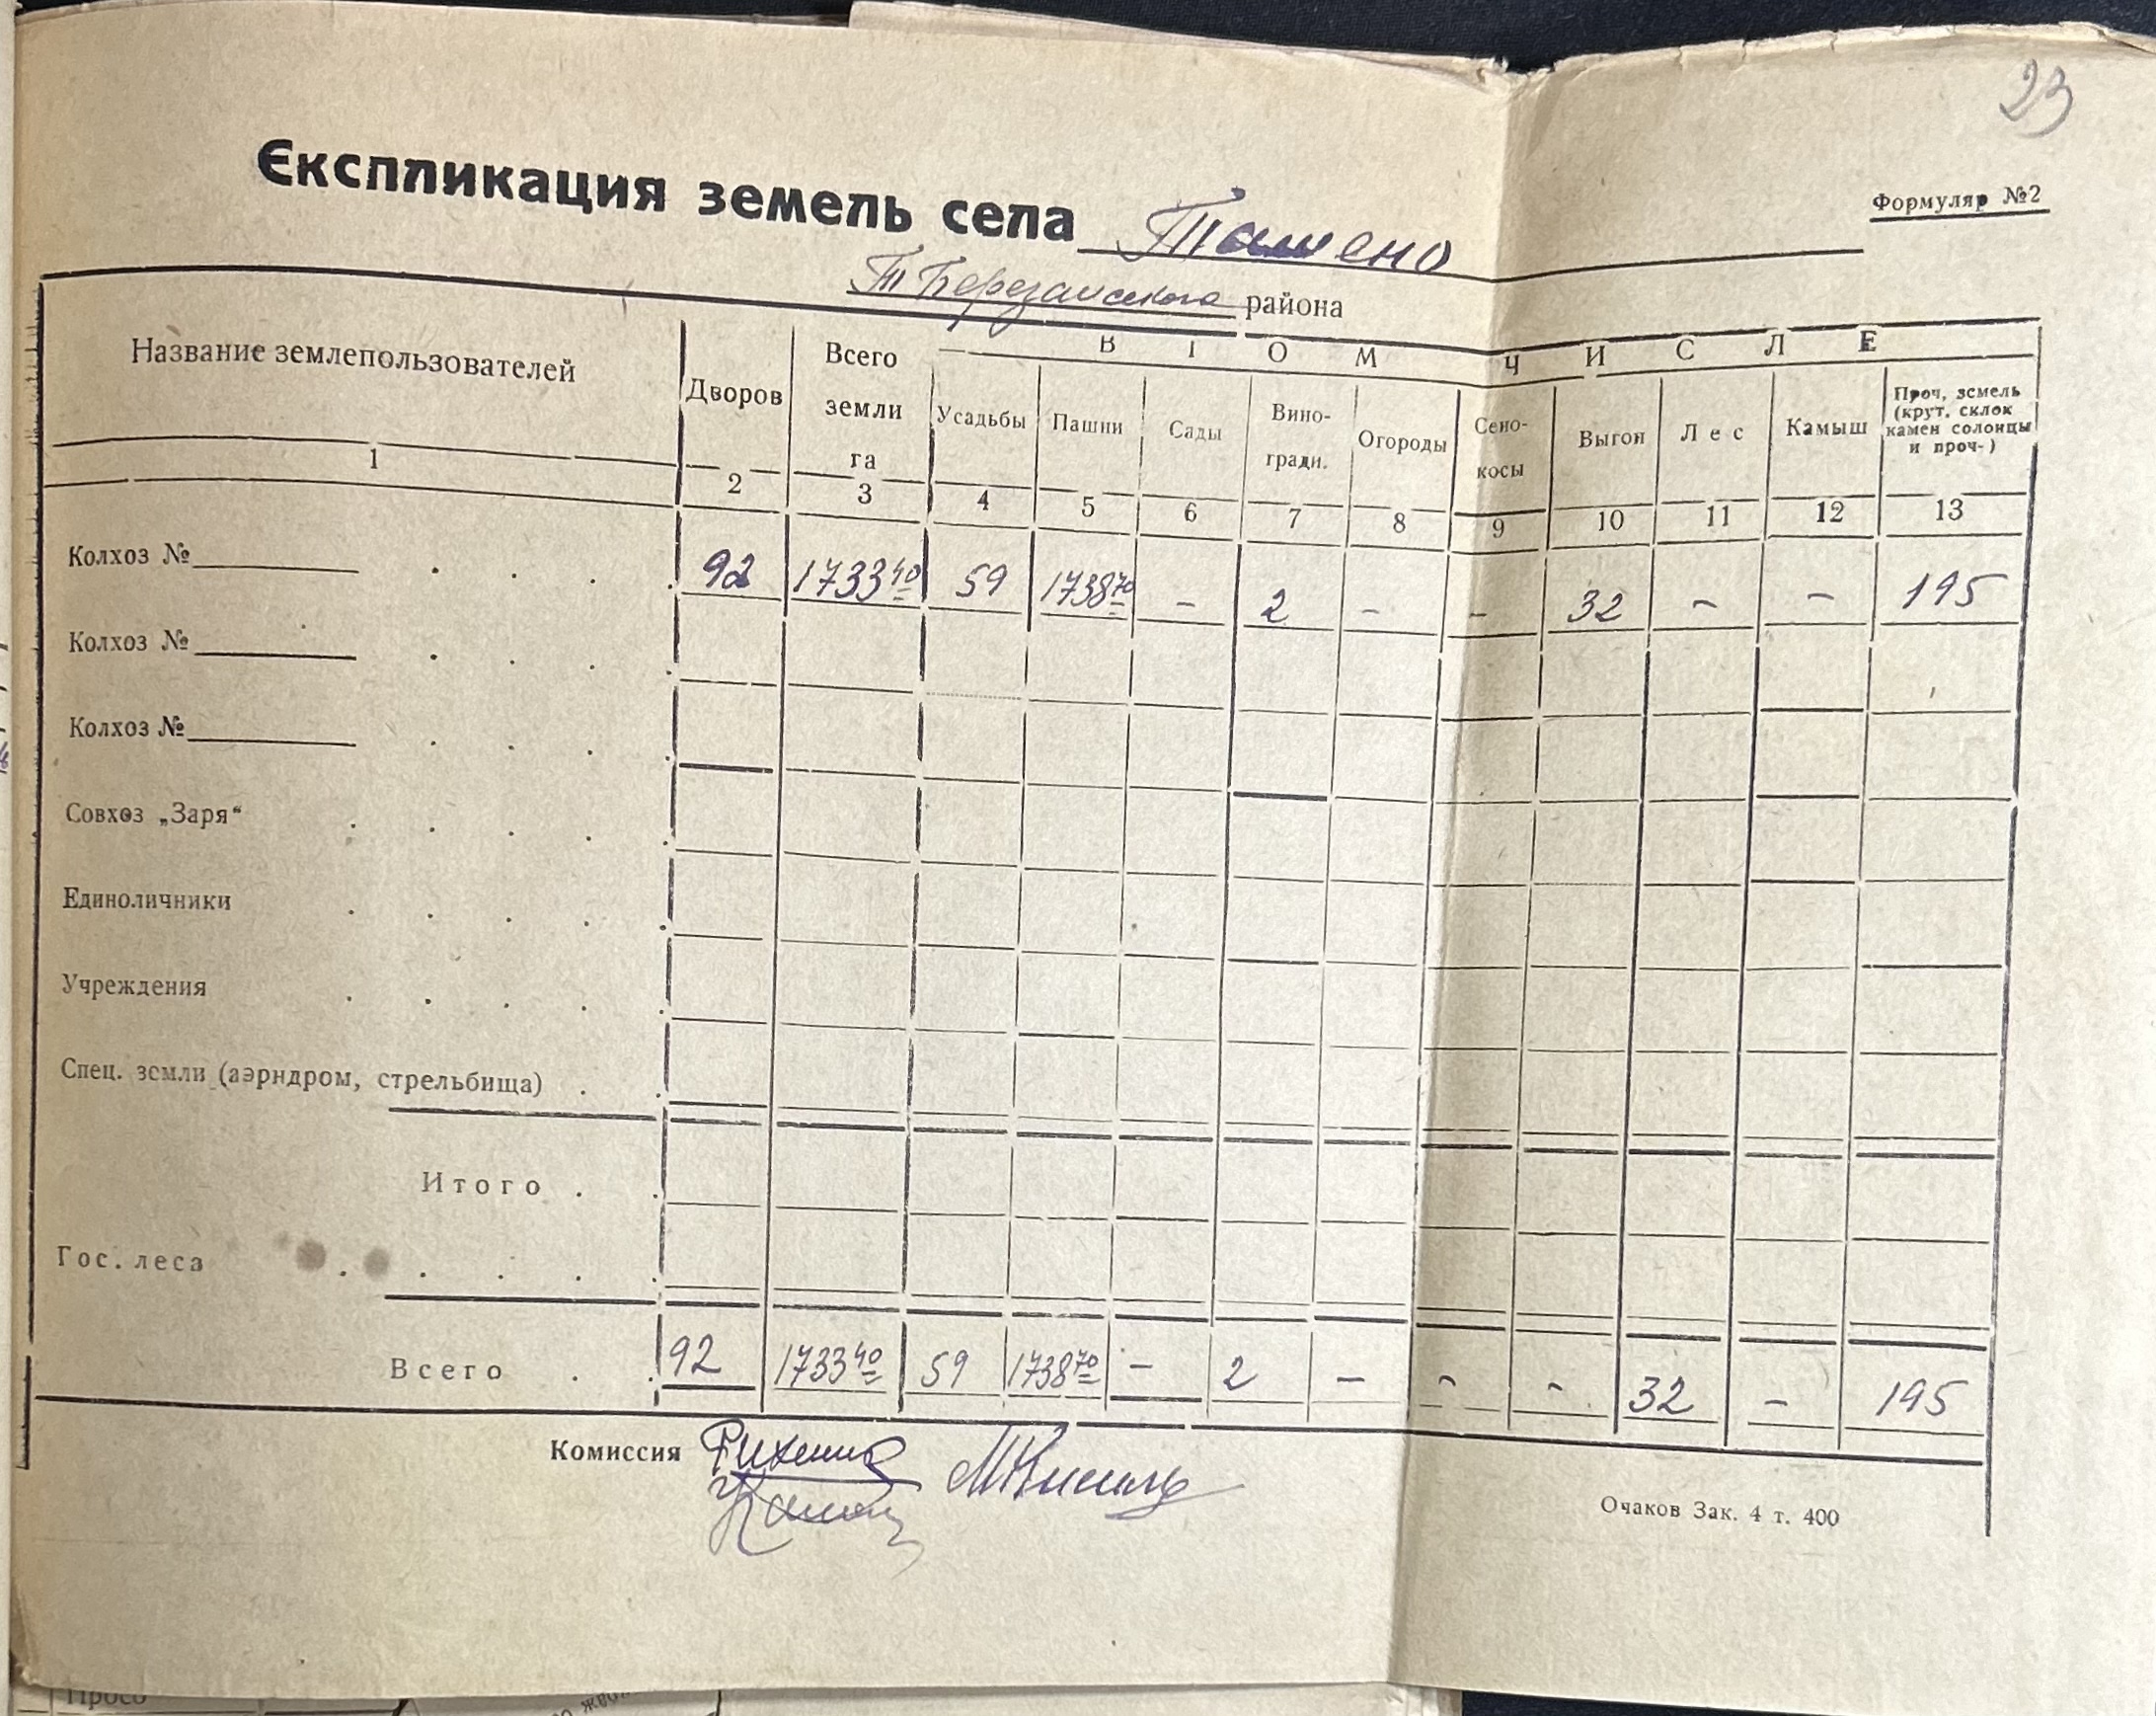 23
Експликация земель села Ташено
Формуляр №2
Т Березанского района
Название землепользователей
Дворов
Всего земли га
В ТОМ ЧИСЛЕ
Усадьбы
Пашни
Сады
Вино-
гради.
Огороды
Сено-
косы
Выгон
Лес
Камыш
Проч, земель
(крут. склок
камен солонцы
и проч-)
1 2 3 4 5 6 7 8 9 10 11 12 13
Колхоз № 92 1733 40 59 1738 70 - 2 - - 32 - - 195
Колхоз №
Колхоз №
Совхоз „Заря“
Единоличники
Учреждения
Спец. земли (аэрндром, стрельбища)
Итого
Гос. леса
Всего 92 1733 40 59 1738 70 - 2 - - - 32 - 195
Комиссия
Очаков Зак. 4 т. 400
Просо